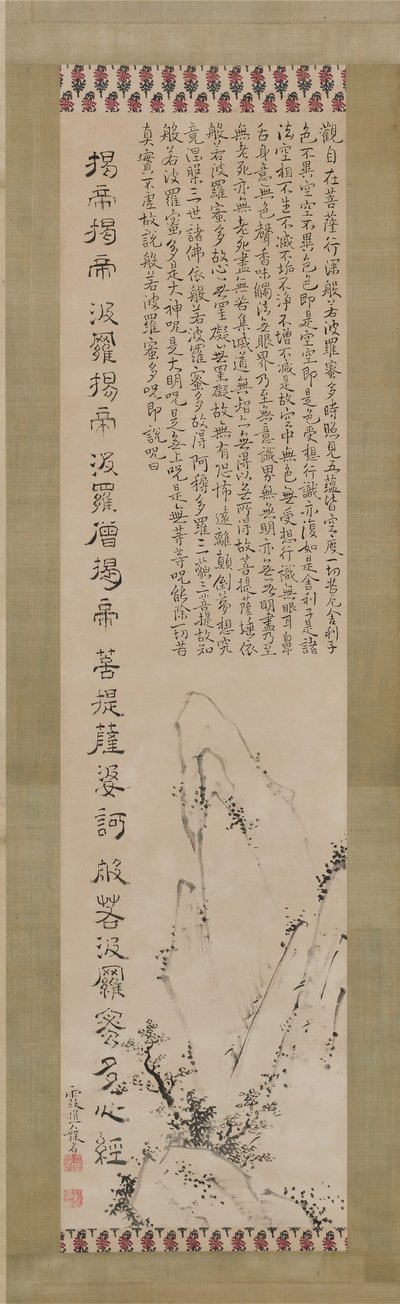 觀自在菩薩行深般若波羅蜜多時照見五蘊皆空度一切苦厄舍利子
色不異空空不異色色即是空空即是色受想行識亦復如是舍利子是諸
法空相不生不滅不垢不淨不增不減是故空中無色無受想行識無眼耳鼻
舌身意無色聲香味觸法无眼界乃至無意識界無無明亦无无明盡乃至
無老死亦無老死盡無苦集滅道無智亦無得以无所得故菩提薩埵依
般若波羅蜜多故心无罣礙无罣礙故無有恐怖遠離顛倒夢想究
竟涅槃三世諸佛依般若波羅蜜多故得阿耨多羅三藐三菩提故知
般若波羅蜜多是大神呪是大明呪是无上呪是無等等呪能除一切苦
真實不虛故說般若波羅蜜多呪即說呪曰
揭帝揭帝波羅揭帝波羅僧揭帝菩提薩婆訶般若波羅蜜多心經